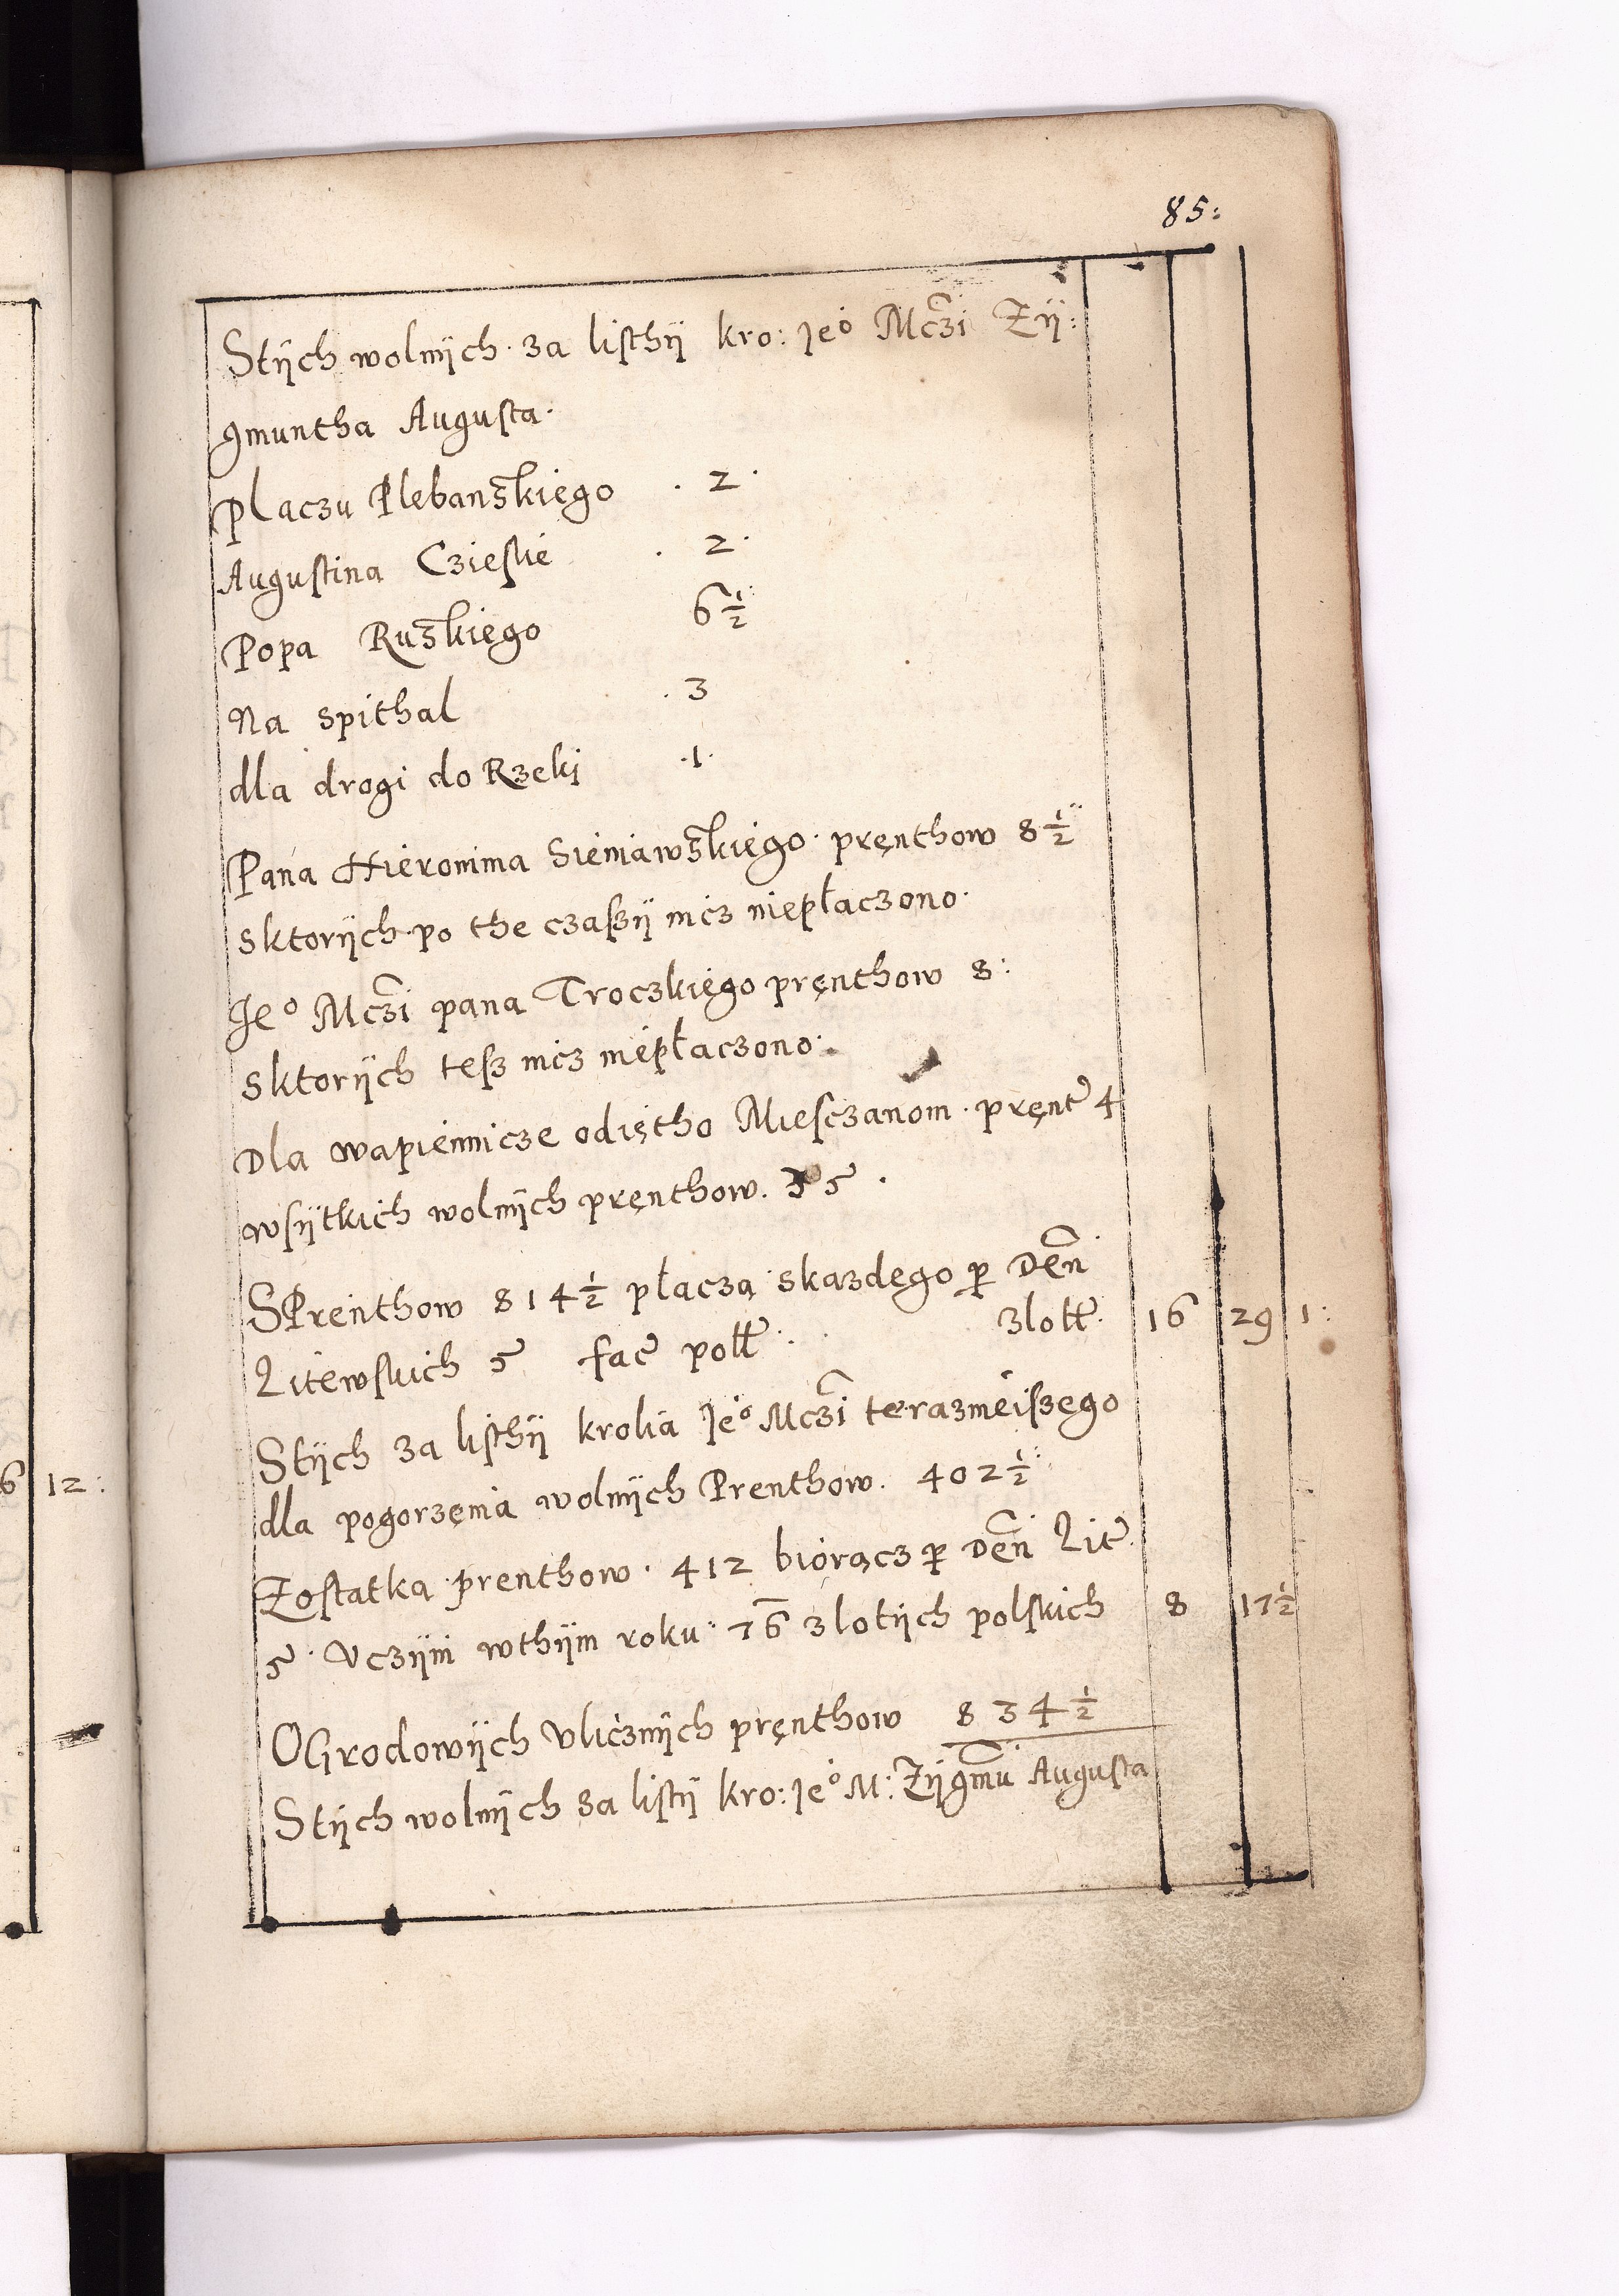 85:
Stÿch wolnÿch · za listhÿ kro: Je° Mczi Zÿ:
gmuntha Augusta·
placzu Plebanskiego · 2 ·
Augustina Czieslie · 2 ·
Popa Ruskiego 6 1/2
Na spithal · 3
dla drogi do Rzeki · 1 ·
Pana Hieronima Sieniawskiego · pręnthow 8 1/2
sktorÿch po the czaszÿ nicz niepłaczono·
Je° Mczi pana Troczkiego pręnthow 8:
sktorÿch tesz nicz niepłaczono·
Dla wapiennicze odiętho Miesczanom · pręnt 4
wsÿtkich wolnÿch pręnthow. 35 ·
SPrenthow 814 1/2 płaczą skazdego p Den
Litewskich 5 fac poll: zloll 16 29 1:
Stÿch za listhÿ krolia Je° Mczi terazneiszego
dla pogorzęnia wolnÿch Prenthow. 402 1/2
Zostatka prenthow · 412 biorącz p Den Lit
5 · Vczÿni wthÿm roku · 76 zlotÿch polskich 8 17 1/2
OGrodowÿch Vlicznÿch pręnthow 834 1/2
Stÿch wolnÿch za listÿ kro: Je° M: Zÿgmu Augusta
6 12: